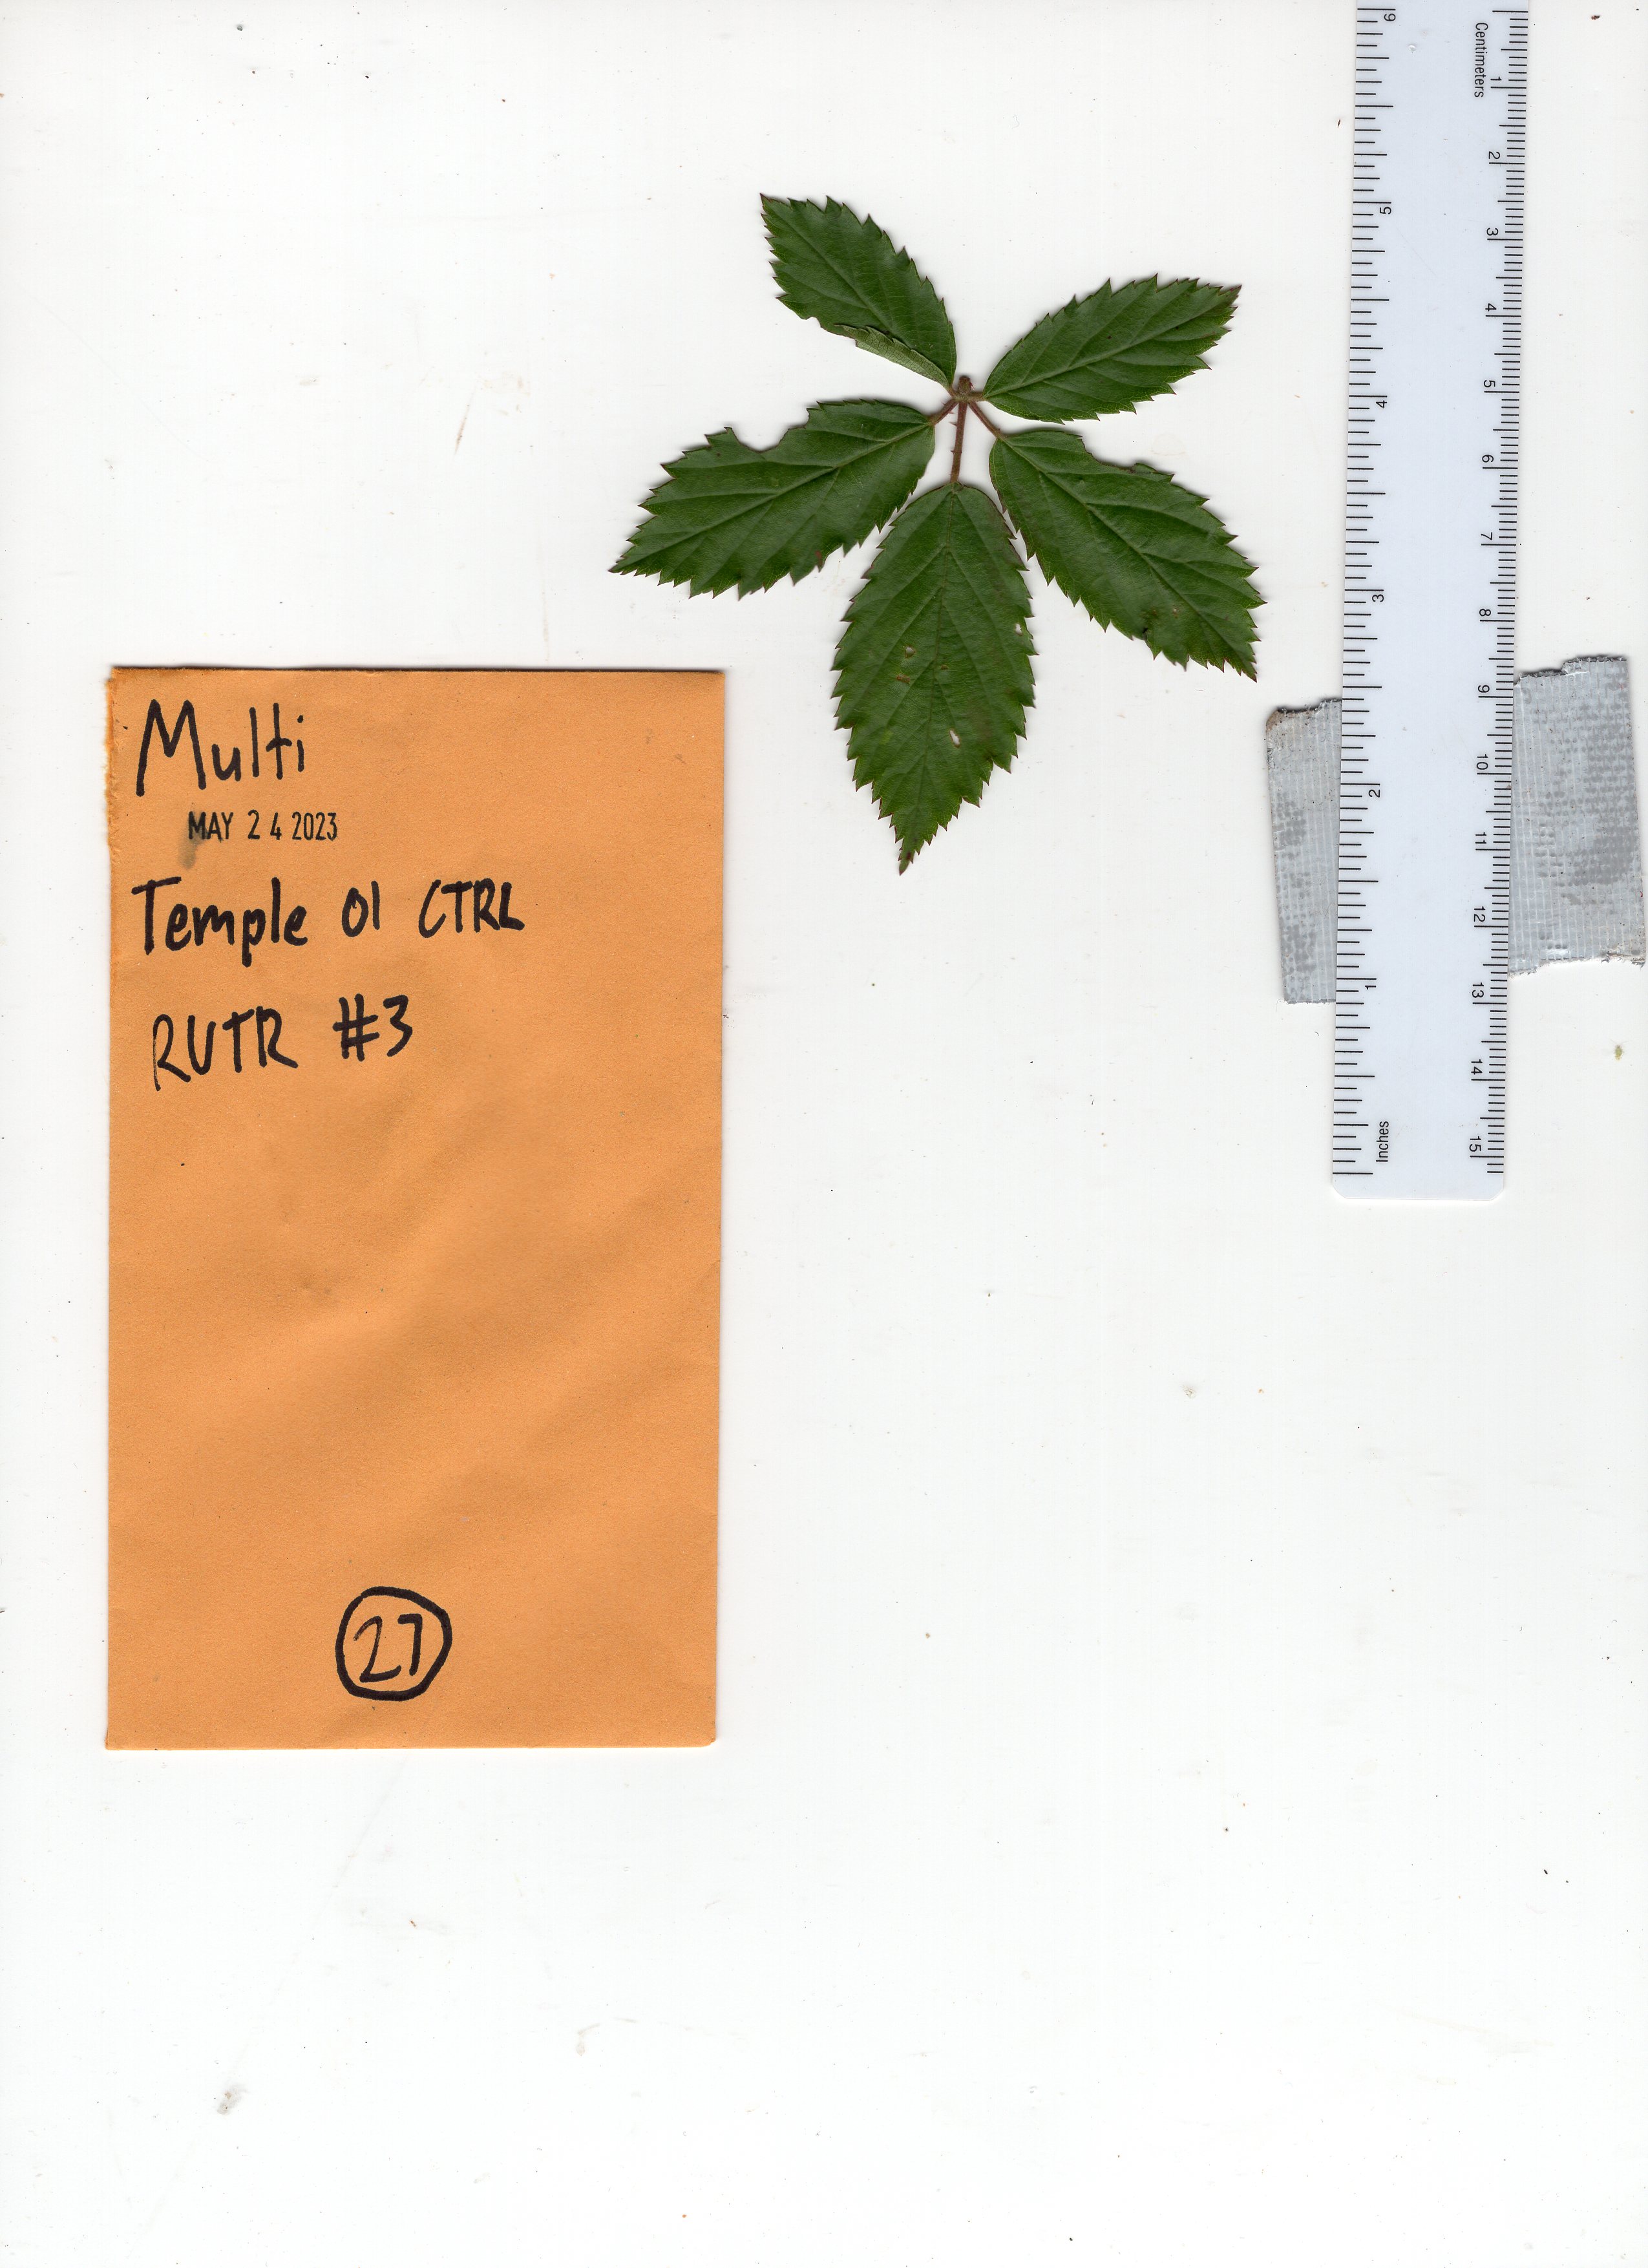 Multi
MAY 24 2023
Temple 01 CTRL
RUTR #3
27
Centimeters
1
2
3
4
5
6
7
8
9
10
11
12
13
14
15
6
5
4
3
2
1
Inches